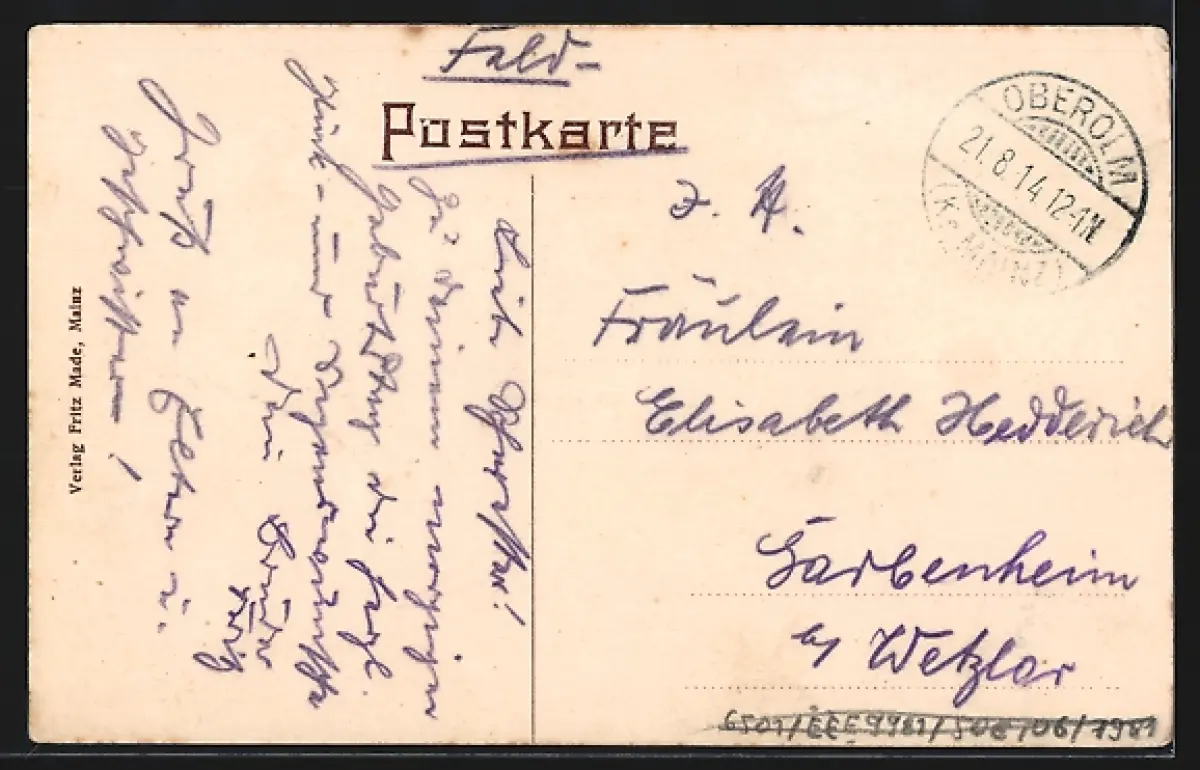 Feld-
Postkarte
OBEROLM
21.8.14.12-1N.
(Kr. MAINZ)
z. H.
Fräulein
Elisabeth Hedderich
Garbenheim
b/ Wetzlar
Liebe Schwester!
Zu Deinem nahen
Geburtstag die herzl.
Glück- u.
Dein Bruder
Gruß an Eltern u.
Geschwister!
Verlag Fritz Made, Mainz